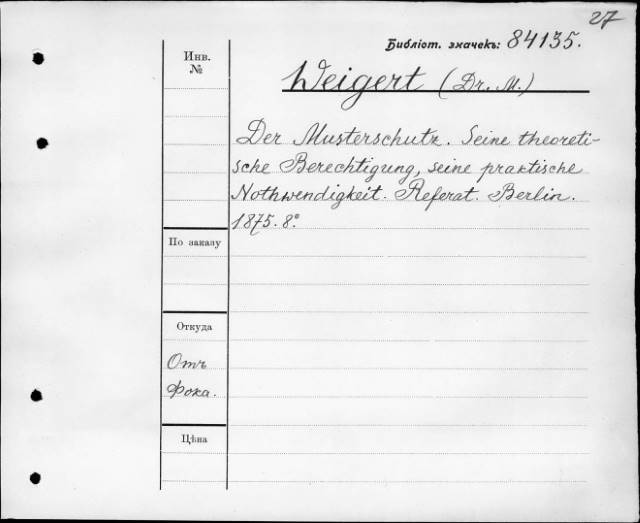 27
Библіот. значекъ: 84135.
Инв.
№
Weigert (Dr. M.)
Der Musterschutz. Seine theoreti-
sche Berechtigung, seine praktische
Nothwendigkeit. Referat. Berlin.
1875. 8°
По заказу
Откуда
Отъ
Фока.
Цѣна